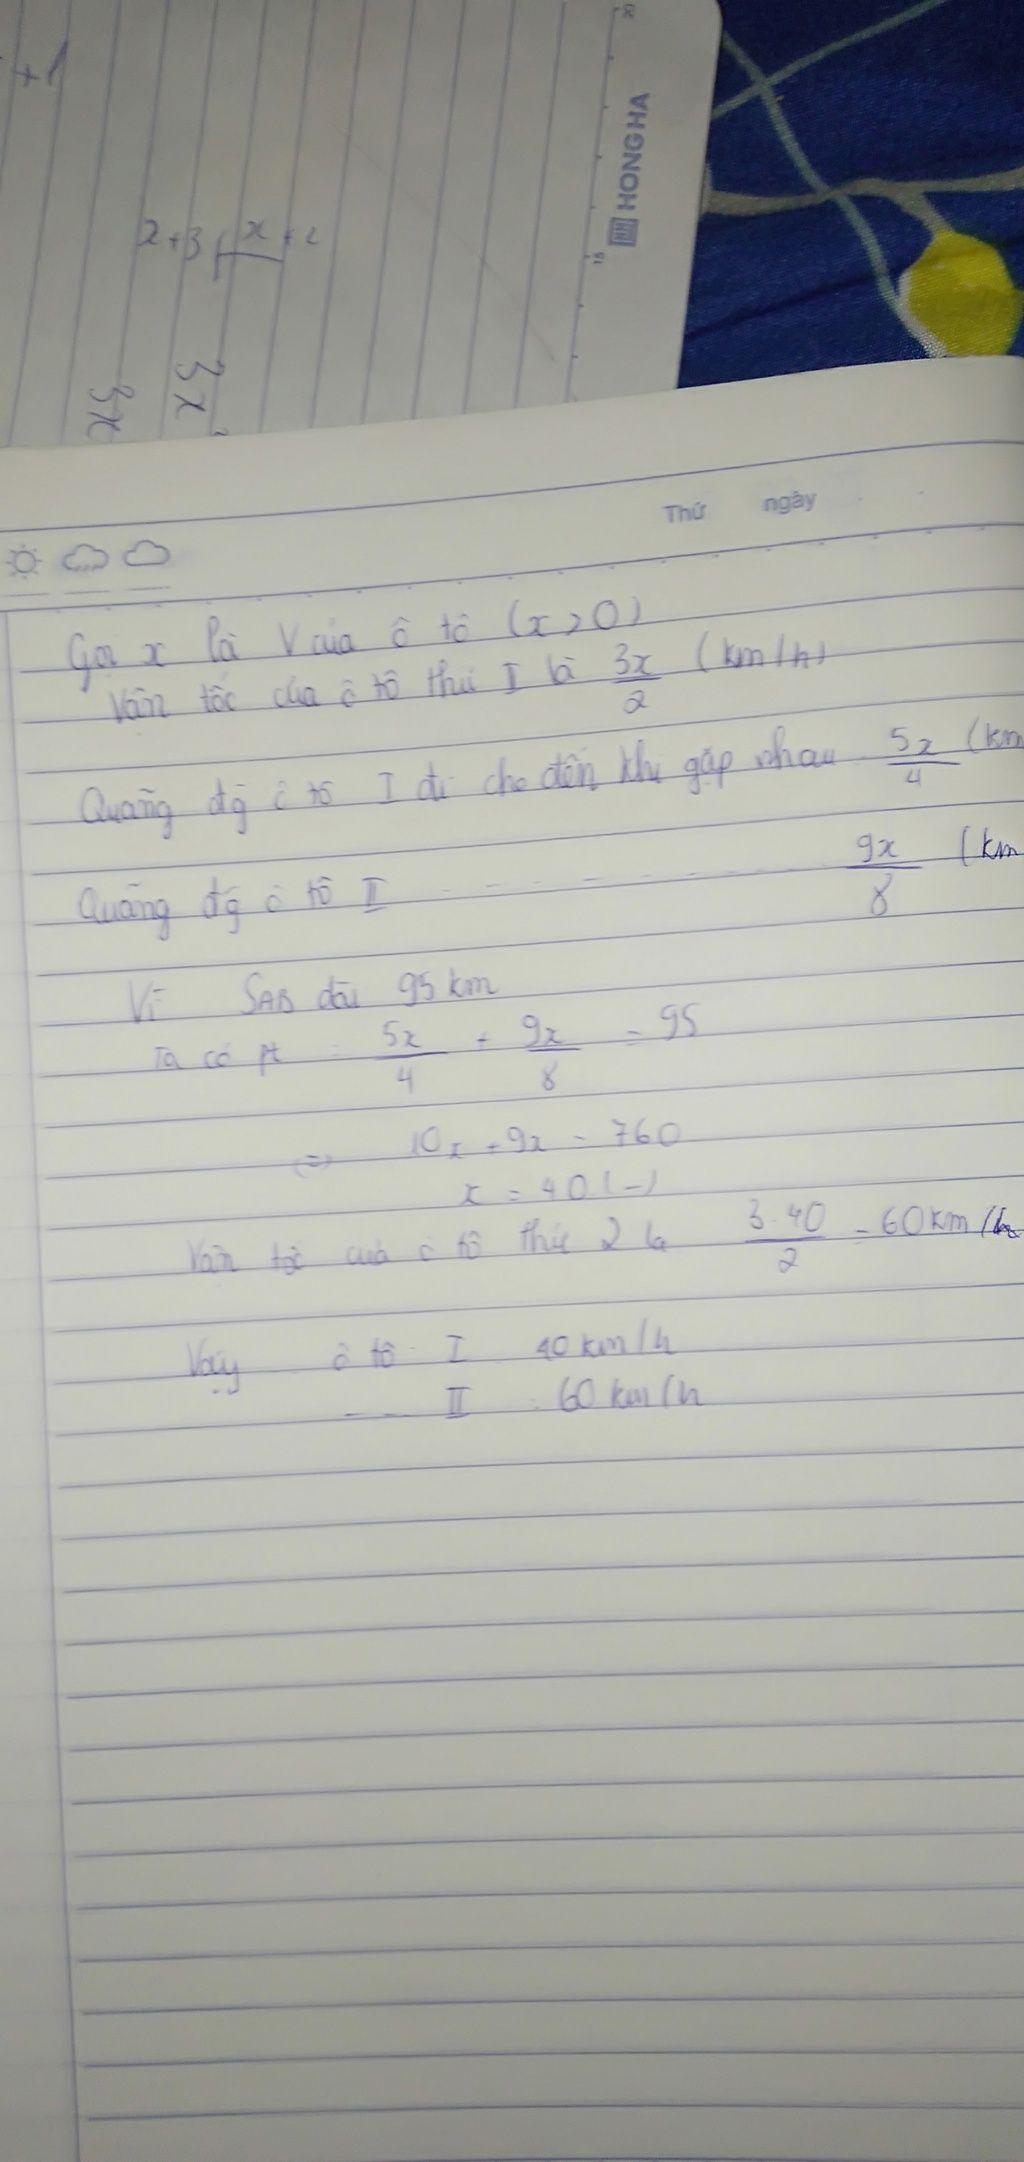 +1
20
HONG HA
15
x+3 x+2
3x
3x
Thứ ngày
Gọi x là V của ô tô (x>0)
Vận tốc của ô tô thứ I là 3x/2 (km/h)
Quãng đg ô tô I đi cho đến khi gặp nhau 5x/4 (km
Quãng đg ô tô II - - - - - - - 9x/8 (km
Vì SAB dài 95km
Ta có pt : 5x/4 + 9x/8 = 95
(=) 10x + 9x = 760
x = 40 (-)
Vận tốc của ô tô thứ 2 là 3.40/2 = 60km/h
Vậy ô tô I 40km/h
--- II : 60km/h